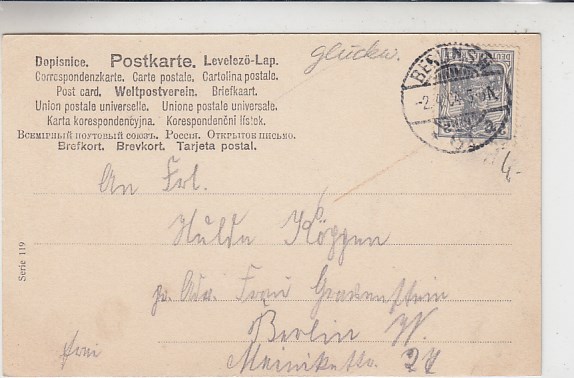 glückw.
Dopisnice. Postkarte. Levelező-Lap.
Correspondenzkarte. Carte postale. Cartolina postale.
Post card. Weltpostverein. Briefkaart.
Union postale universelle. Unione postale universale.
Karta korespondencyjna. Korespondenční lístek.
Всемірный почтовый союзъ. Россія. Открытое письмо.
Brefkort. Brevkort. Tarjeta postal.
BERLIN. S.W.
4,-
An Frl.
Hulda Köppen
Adr. Frau Gravenstein
Berlin W.
Meinikestr. 27
frei
Serie 119